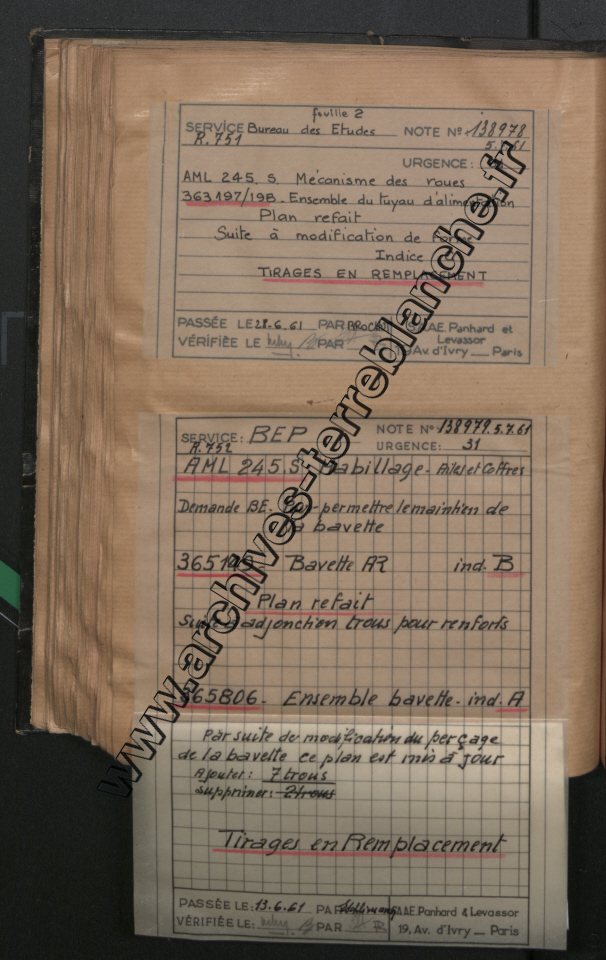 feuille 2
SERVICE Bureau des Etudes NOTE N° 138978
R.751 5.7.61
URGENCE:
AML 245. S. Mécanisme des roues
363197/198 - Ensemble du tuyau d'alimentation
Plan refait
Suite à modification de forme
Indice
TIRAGES EN REMPLACEMENT
PASSÉE LE 28.6.61 PAR S.A.AE. Panhard et
Levassor
VÉRIFIÉE LE PAR 19 Av. d'Ivry __ Paris
SERVICE: BEP NOTE N° 138979. 5.7.61
R.752 URGENCE: 31
AML 245.S Habillage - Ailes et Coffres
Demande BE. Pour permettre le maintien de
la bavette
Bavette AR ind. B
Plan refait
Suite à adjonction trous pour renforts
365806 - Ensemble bavette - ind. A
Par suite de modification du perçage
de la bavette ce plan est mis à jour
Ajouter: 7 trous
Supprimer: 2 trous
Tirages en Remplacement
PASSÉE LE: 13.6.61 PAR S.A.AE. Panhard & Levassor
VÉRIFIÉE LE: PAR 19, Av. d'Ivry __ Paris
www.archives-terreblanche.fr